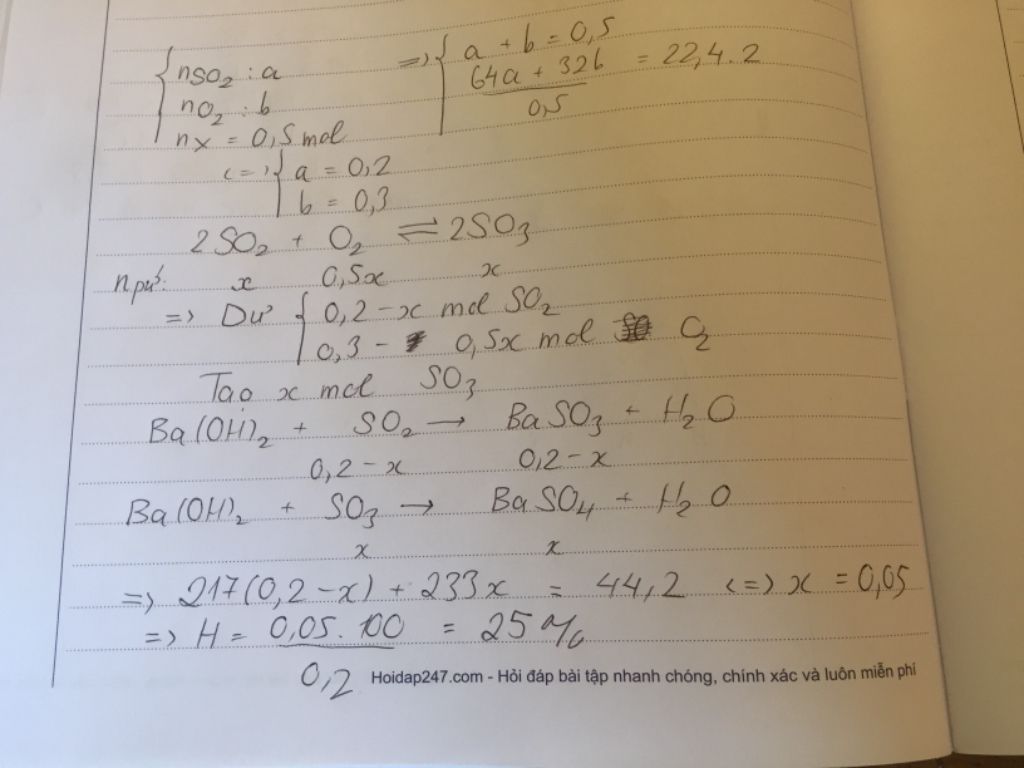 nSO₂ : a => a + b = 0,5
nO₂ : b (64a + 32b)/0,5 = 22,4.2
nx = 0,5 mol
<=> a = 0,2
b = 0,3
2SO₂ + O₂ ⇌ 2SO₃
npứ: x 0,5x x
=> Dư { 0,2 - x mol SO₂
0,3 - 0,5x mol O₂
Tạo x mol SO₃
Ba(OH)₂ + SO₂ → BaSO₃ + H₂O
0,2 - x 0,2 - x
Ba(OH)₂ + SO₃ → BaSO₄ + H₂O
x x
=> 217(0,2 - x) + 233x = 44,2 <=> x = 0,05
=> H = 0,05.100/0,2 = 25%
Hoidap247.com - Hỏi đáp bài tập nhanh chóng, chính xác và luôn miễn phí